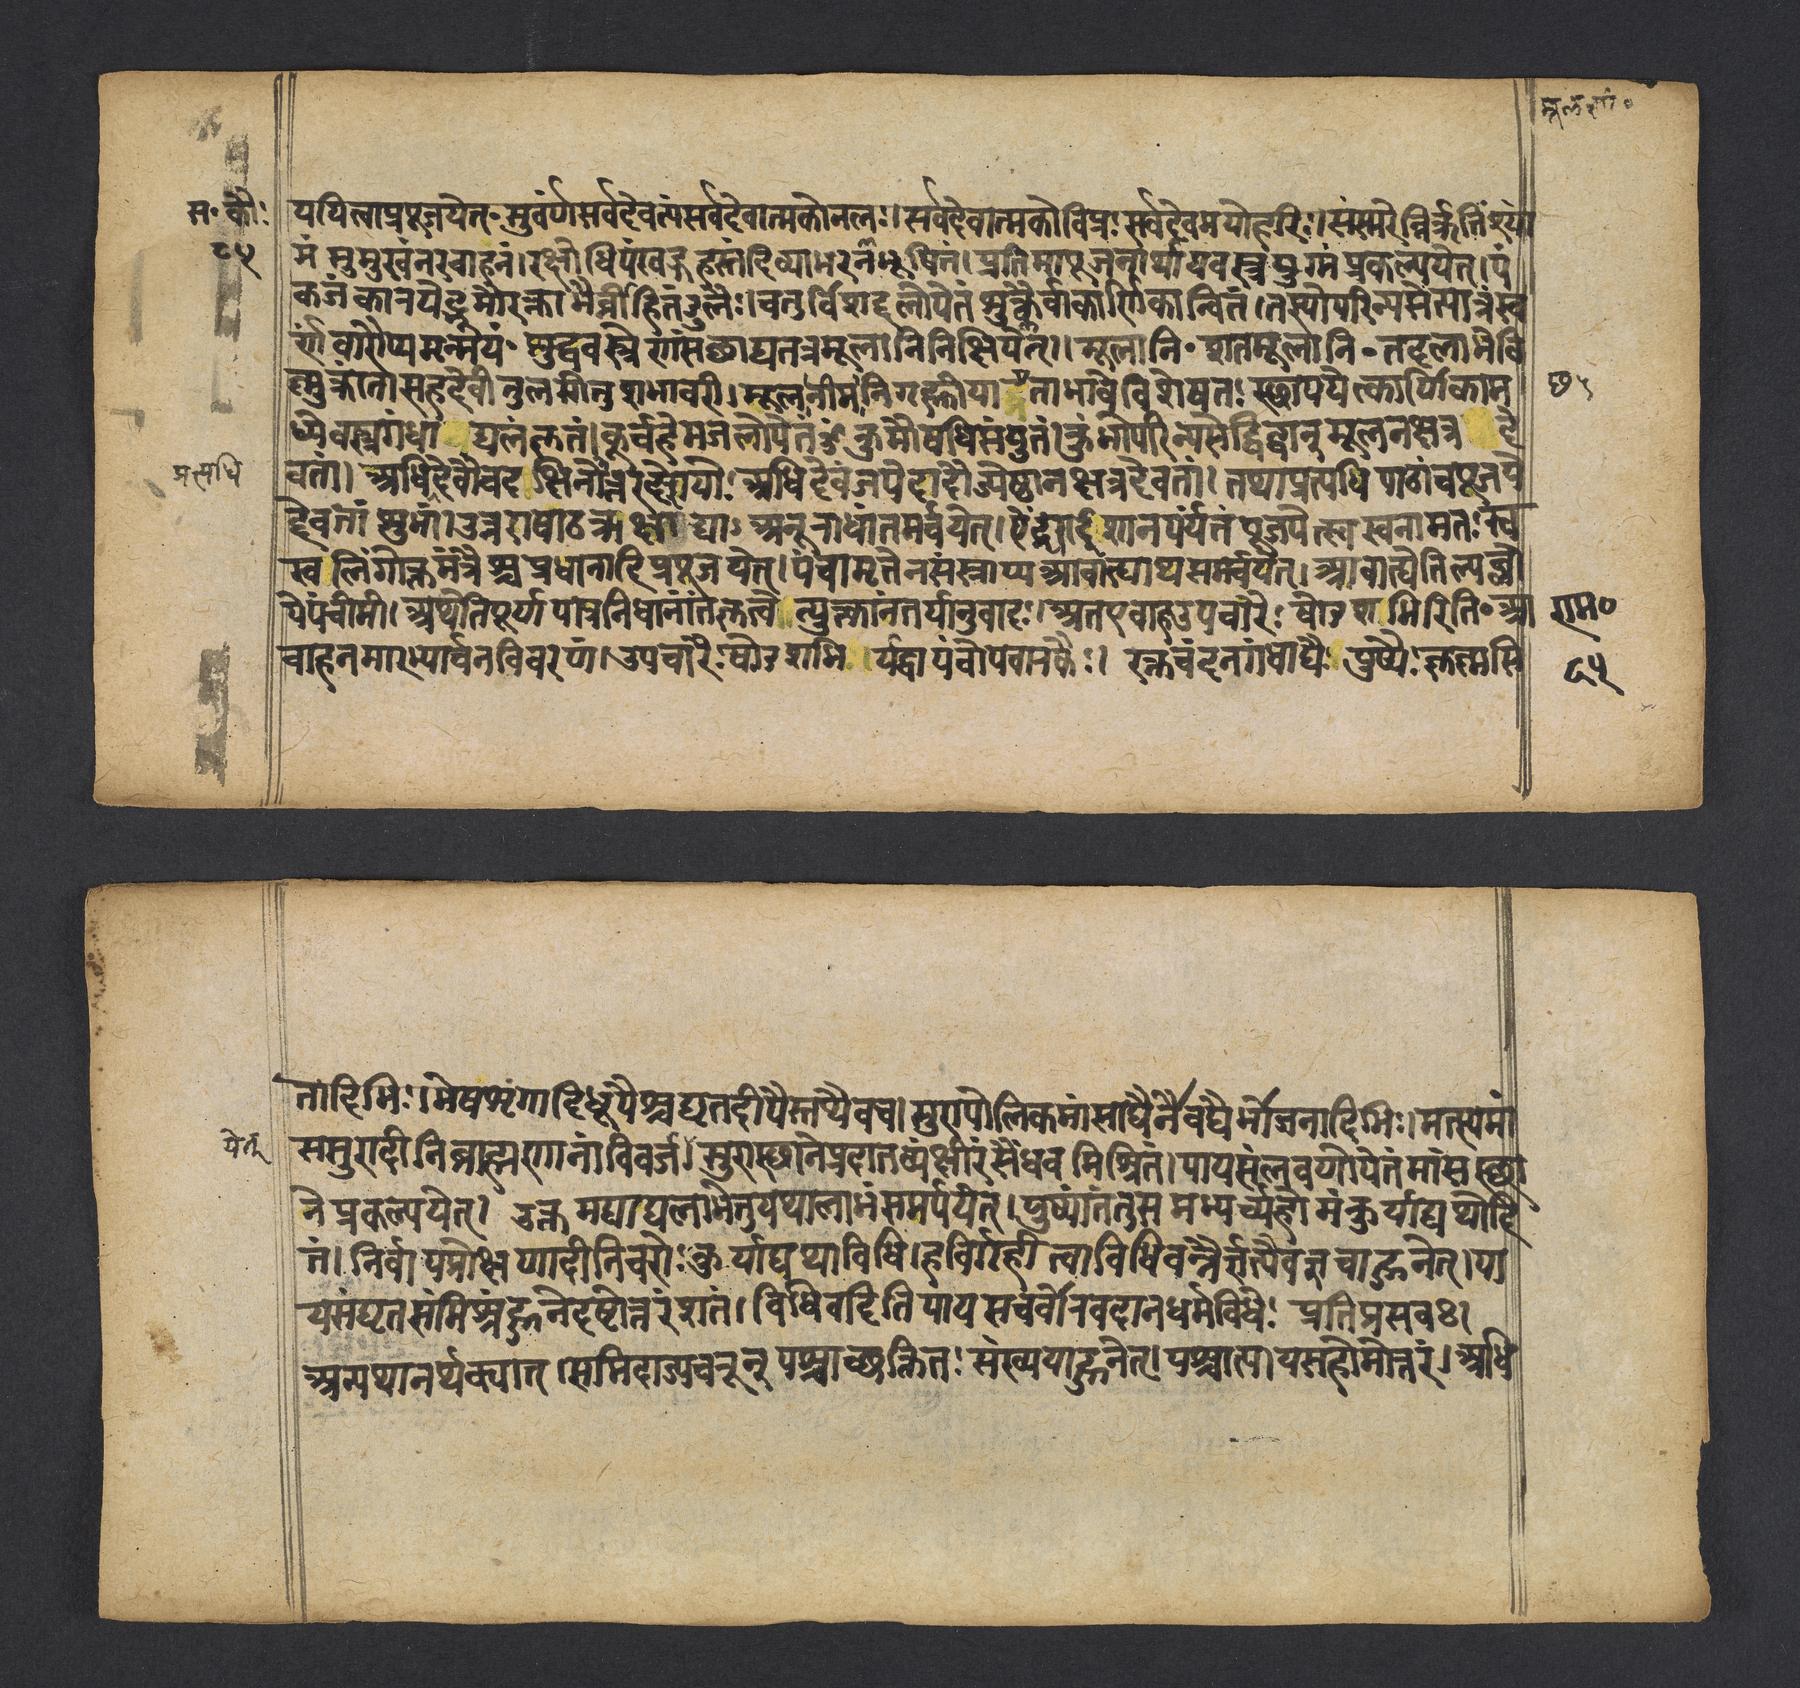 मूलशां०
सं॰ कौः
८५
ययित्वाप्रपूजयेत्॰सुवर्णंसर्वदैवत्यंसर्वदेवात्मकोनलः। सर्वदेवात्मकोविप्रः सर्वदेवमयोहरिः। संस्मरेन्निर्ऋतिंश्या
मं सुमुखंनरवाहनं। रक्षोधिपंखड्गहस्तंदिव्याभरनभूषितं। प्रतिमापूजनार्थायवस्त्रयुग्मं प्रकल्पयेत्। पं
कजंकारयेद्भूमौरक्तमैर्व्रीहितंडुलैः। चतुर्विंशद्दलोपेतं शुक्लैर्वाकर्णिकान्वितं। तस्योपरिन्यसेत्पात्रंस्व
र्णंवारौप्यमन्मयं॰ शुद्धवस्त्रेणसंछाद्यतत्रमूलानिनिक्षिपेत्।। मूलानि॰ शतमूलानि॰ तदलाभेवि
ष्णुक्रांता। सहदेवीतुलसीतुशभावरी। मूलनीमनिगह्णीया त्तेताभावेविशेषतः स्थापयेत्कर्णिकाम
ध्येवस्त्रगंधा द्यलंकृतं। कूर्चहेमजलोपेतं कुमौषधिसंयुतं। कुंभोपरिन्यसेद्विद्वान्मूलनक्षत्र दे
प्रत्यधि
वतां। अधिदेवौचदक्षिनोत्तरदेशयोः अधिदेवंजपेदादौज्येष्ठानक्षत्रदेवतां। तथाप्रत्यधि पाठांचपूजये
द्देवतां सुभां। उत्तराषाढऋक्षा द्या॰ अनूराधांतमर्चयेत्। ऐंद्राद्ईशानपर्यंतं पूजयेत्स्व स्वनामतः स्व
स्व लिंगोक्तमंत्रैश्चप्रधानादिप्रपूजयेत्। पंचामृतेनसंस्नाप्य आवाह्याथसमर्चयेत्। आवाह्येतिल्यब्लो
पेपंचीमी। अथेतिपूर्णपात्रनिधानांतकृत्ये त्युक्तानंतर्यानुवादः। अतएवाहउपचारैः षोडशभिरिति॰ आ
वाहनमारभ्यार्चनविवरणं। उपचारैःषोडशभि र्यद्वापंचोपचारकैः। रक्तचंदनगंधाद्यैः पुष्पैः कृतासि
राम०
८५
तादिभिः। मेषशृंगादिधूपैश्चघृतदीपैस्तथैवच। सुरापोलिकमांसाद्यैर्नैवेद्यैर्भोजनादिभिः। मत्स्यमां
ससुरादीनिब्राह्मणानांविवर्ज
येत्
सुरास्थानेप्रदातव्यंक्षीरंसैंधवमिश्रितं। पायसंलवणोपेतंमांसस्था
ने प्रकल्पयेत्। उक्तमद्याद्यलाभेतुयथालाभंसमर्पयेत्। पुष्पांतंतुसमभ्यर्च्यहोमंकुर्याद्यथोदि
तं। निर्वापप्रोक्षणादीनिचरोः कुर्याद्यथाविधि। हविर्गृहीत्वाविधिवन्नैर्ऋत्यैवऋचाहुनेत्। पा
यसंघृतसंमिश्रंहुनेदष्टोत्तरंशतं। विधिवदितिपायसचर्वोरवदानधर्मविधेः प्रतिप्रसवः।
अन्यथानर्थक्यात्। समिदाज्यचरून् पश्चाच्छक्तितः संख्ययाहुनेत्। पश्चात्पायसहोमोत्तरं। अधि